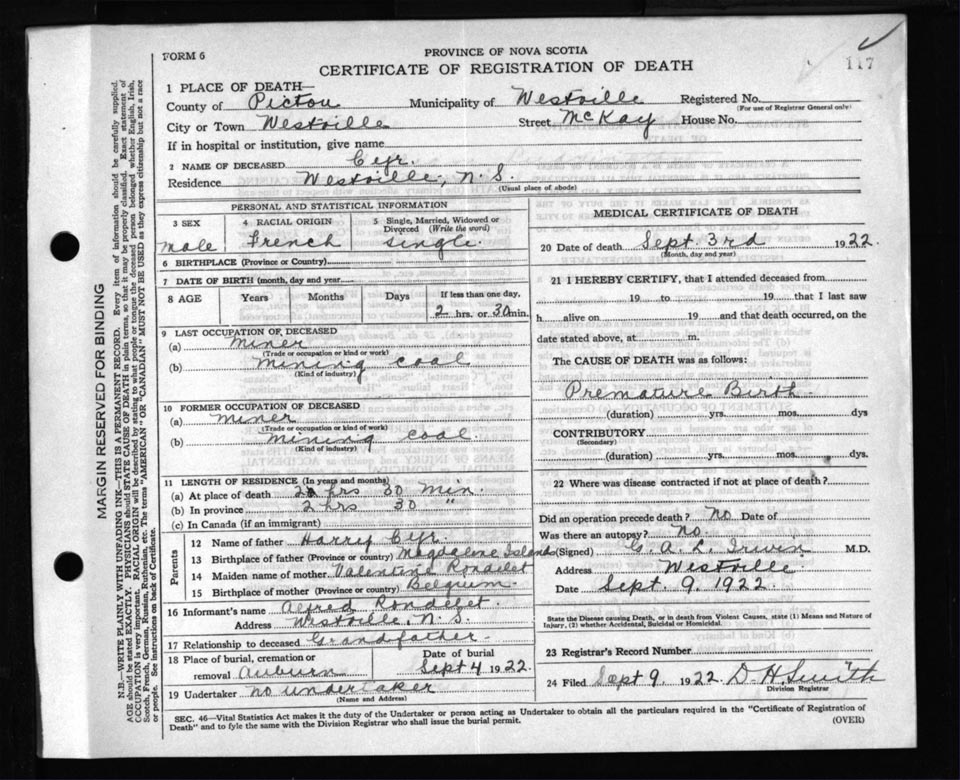 FORM 6
PROVINCE OF NOVA SCOTIA
117
CERTIFICATE OF REGISTRATION OF DEATH
1 PLACE OF DEATH—
County of Pictou Municipality of Westville Registered No.
(For use of Registrar General only)
City or Town Westville Street McKay House No.
If in hospital or institution, give name
2 NAME OF DECEASED Cyr.
Residence Westville, N.S.
(Usual place of abode)
PERSONAL AND STATISTICAL INFORMATION
3 SEX 4 RACIAL ORIGIN 5 Single, Married, Widowed or Divorced (Write the word)
male French single.
6 BIRTHPLACE (Province or Country)
7 DATE OF BIRTH (month, day and year)
8 AGE Years Months Days If less than one day,
2 hrs. or 30 min.
9 LAST OCCUPATION OF DECEASED
(a) miner
(Trade or occupation or kind or work)
(b) mining coal
(Kind of industry)
10 FORMER OCCUPATION OF DECEASED
(a) miner
(Trade or occupation or kind or work)
(b) mining coal.
(Kind of industry)
11 LENGTH OF RESIDENCE (In years and months)
(a) At place of death 2 hrs 30 min.
(b) In province 2 hrs 30 "
(c) In Canada (if an immigrant)
Parents
12 Name of father Harry Cyr.
13 Birthplace of father (Province or country) Magdalene Islands
14 Maiden name of mother Valentine Rondelet
15 Birthplace of mother (Province or country) Belgium.
16 Informant's name Alfred Rondelet.
Address Westville, N.S.
17 Relationship to deceased Grandfather
18 Place of burial, cremation or removal Auburn Date of burial Sept 4 1922.
19 Undertaker no undertaker
(Name and Address)
MEDICAL CERTIFICATE OF DEATH
20 Date of death Sept. 3rd 1922.
(Month, day and year)
21 I HEREBY CERTIFY, that I attended deceased from
19 to 19 that I last saw
h alive on 19 and that death occurred, on the
date stated above, at m.
The CAUSE OF DEATH was as follows:
Premature Birth
(duration) yrs. mos. dys
CONTRIBUTORY
(Secondary)
(duration) yrs. mos. dys.
22 Where was disease contracted if not at place of death?
Did an operation precede death? no Date of
Was there an autopsy? no.
(Signed) G. A. L. Irwin M.D.
Address Westville.
Date Sept. 9, 1922.
State the Disease causing Death, or in death from Violent Causes, state (1) Means and Nature of
Injury, (2) whether Accidental, Suicidal or Homicidal.
23 Registrar's Record Number
24 Filed Sept 9. 1922. D. H Smith
Division Registrar
SEC. 46—Vital Statistics Act makes it the duty of the Undertaker or person acting as Undertaker to obtain all the particulars required in the "Certificate of Registration of
Death" and to fyle the same with the Division Registrar who shall issue the burial permit.
(OVER)
MARGIN RESERVED FOR BINDING
N.B.—WRITE PLAINLY WITH UNFADING INK—THIS IS A PERMANENT RECORD. Every item of information should be carefully supplied.
AGE should be stated EXACTLY. PHYSICIANS should STATE CAUSE OF DEATH in plain terms, so that it may be properly classified. Exact statement of
OCCUPATION is very important. RACIAL ORIGIN will be described by stating to what people or tongue the deceased person belonged whether English, Irish,
Scotch, French, German, Russian, Ruthenian, etc. The terms "AMERICAN" OR "CANADIAN" MUST NOT BE USED as they express citizenship but not a race
or people. See instructions on back of Certificate.